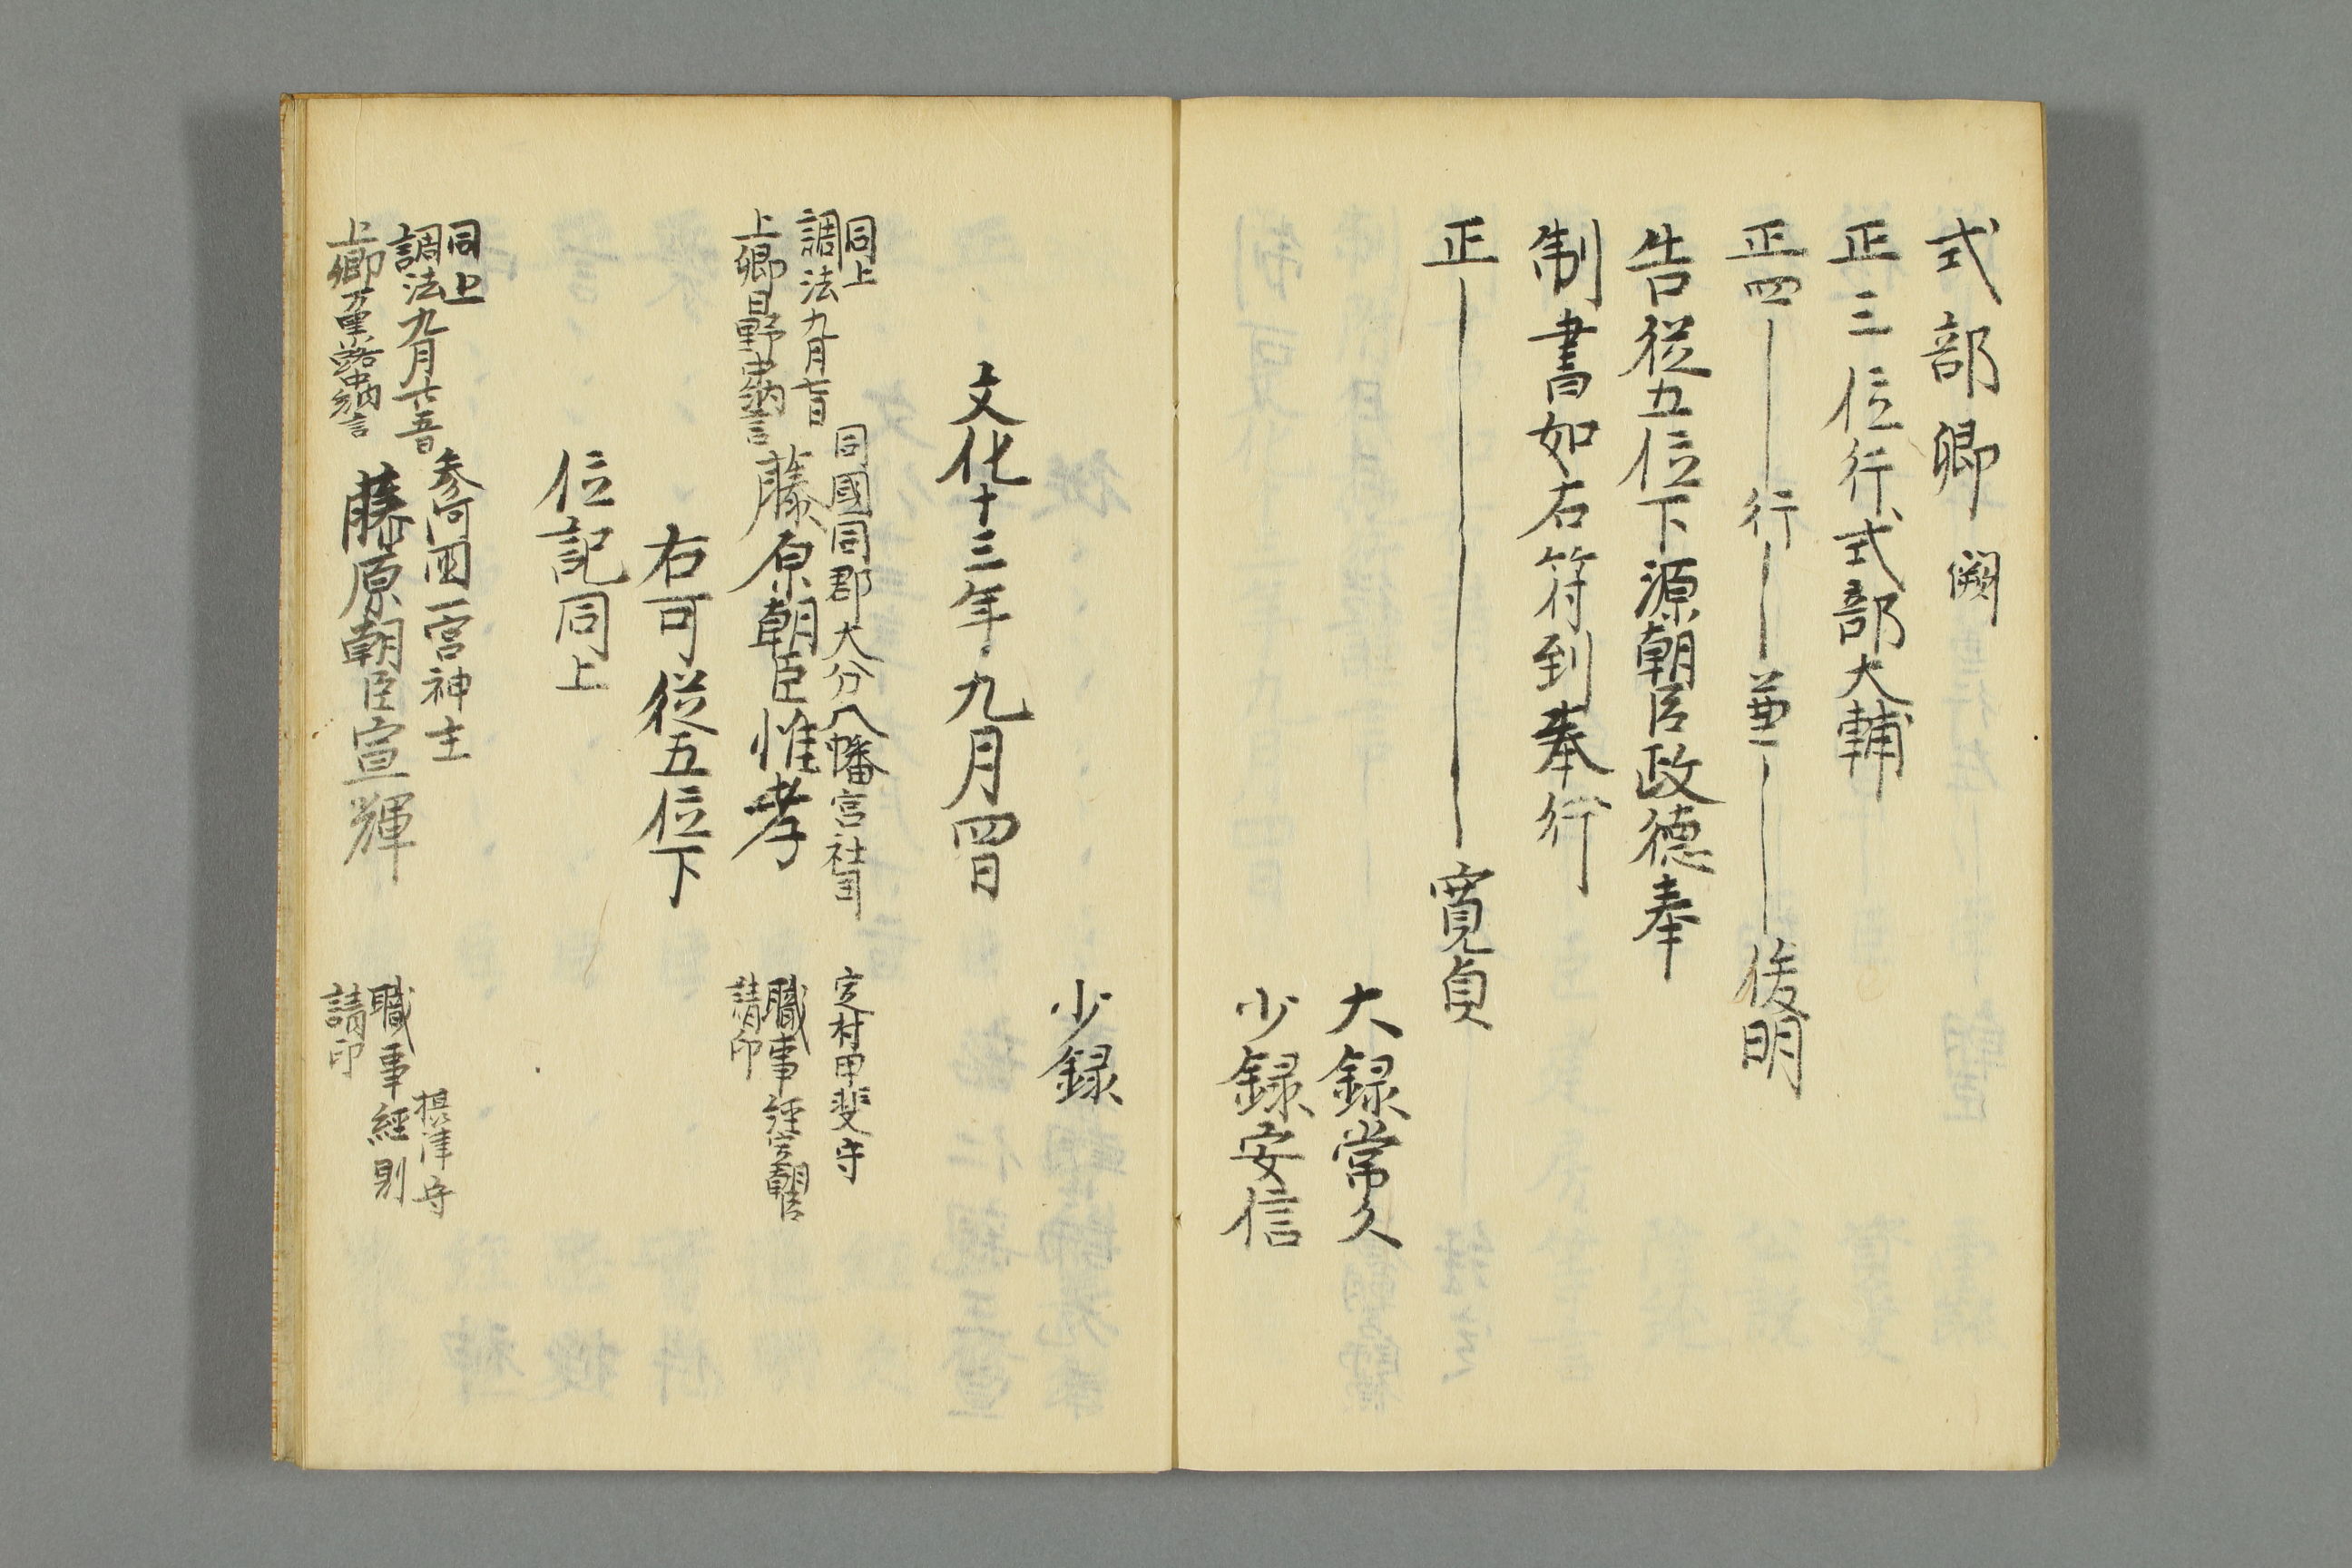 式部卿 闕
正三位行式部大輔
正四――行――兼――俊明
告従五位下源朝臣政徳奉
制書如右符到奉行
正――――寛貞
大録常久
少録安信
少録
文化十三年九月四日
同上
調法九月七日
上卿日野中納言
同國同郡大分八幡宮社司
藤原朝臣惟孝
定村甲斐守
職事
請印
右可従五位下
位記同上
同上
調法九月廿五日
上卿万里小路中納言
参河国一宮神主
藤原朝臣宣輝
摂津守
職事經則
請印